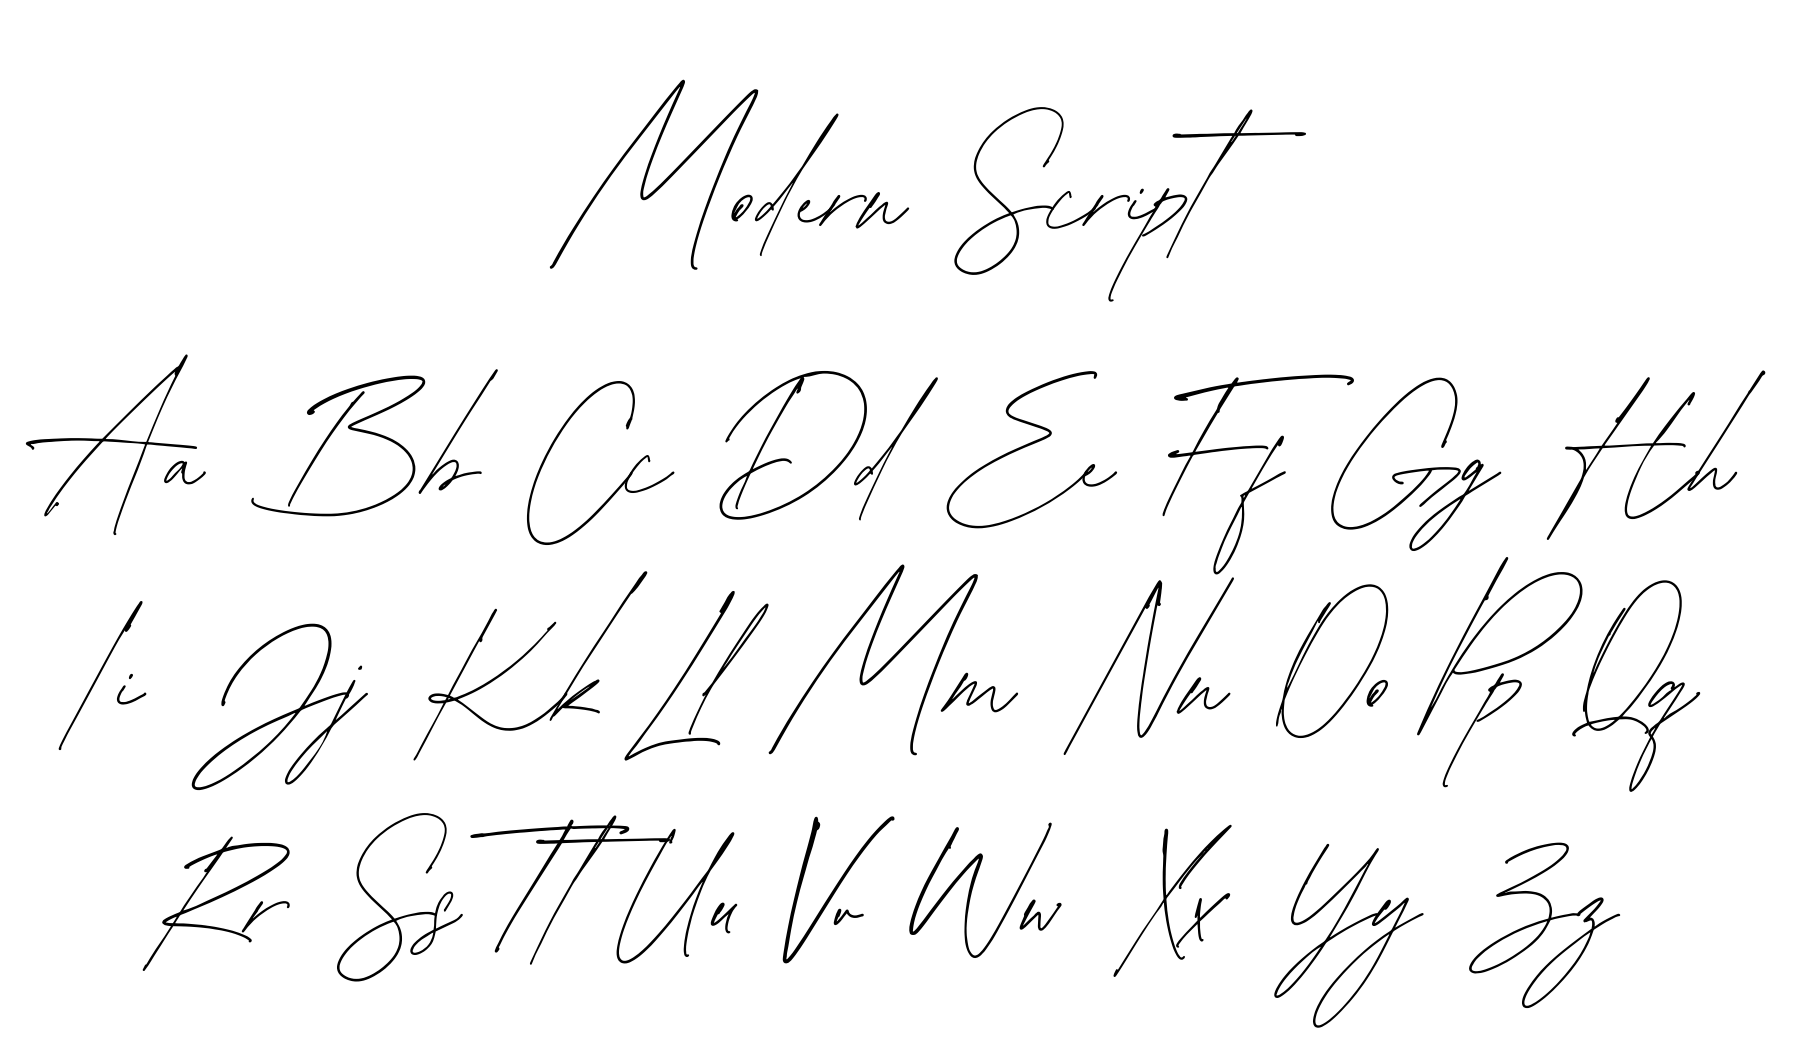 Modern Script
Aa Bb Cc Dd Ee Ff Gg Hh
Ii Jj Kk Ll Mm Nn Oo Pp Qq
Rr Ss Tt Uu Vv Ww Xx Yy Zz